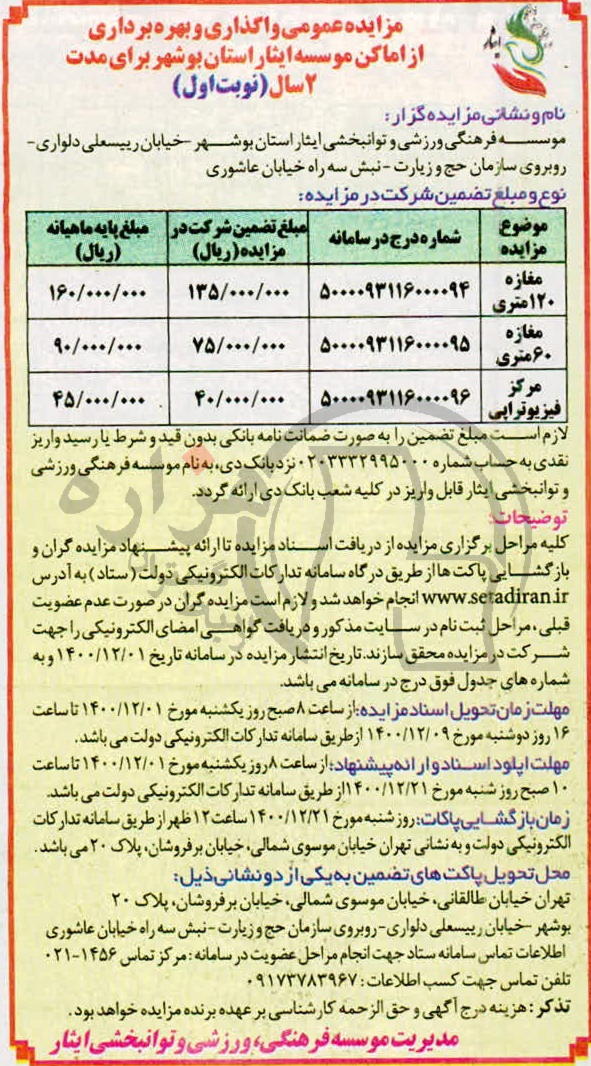 ایثار
مزایده عمومی واگذاری و بهره برداری
از اماکن موسسه ایثار استان بوشهر برای مدت
۲ سال (نوبت اول)
نام و نشانی مزایده گزار:
موسسه فرهنگی ورزشی و توانبخشی ایثار استان بوشهر -خیابان رییسعلی دلواری-
روبروی سازمان حج و زیارت - نبش سه راه خیابان عاشوری
نوع و مبلغ تضمین شرکت در مزایده:
موضوع مزایده شماره درج در سامانه مبلغ تضمین شرکت در مزایده (ریال) مبلغ پایه ماهیانه (ریال)
مغازه ۱۲۰متری ۵۰۰۰۰۹۳۱۱۶۰۰۰۰۹۴ ۱۳۵/۰۰۰/۰۰۰ ۱۶۰/۰۰۰/۰۰۰
مغازه ۶۰متری ۵۰۰۰۰۹۳۱۱۶۰۰۰۰۹۵ ۷۵/۰۰۰/۰۰۰ ۹۰/۰۰۰/۰۰۰
مرکز فیزیوتراپی ۵۰۰۰۰۹۳۱۱۶۰۰۰۰۹۶ ۴۰/۰۰۰/۰۰۰ ۴۵/۰۰۰/۰۰۰
لازم است مبلغ تضمین را به صورت ضمانت نامه بانکی بدون قید و شرط یا رسید واریز
نقدی به حساب شماره ۰۲۰۳۳۳۲۹۹۵۰۰۰ نزد بانک دی، به نام موسسه فرهنگی ورزشی
و توانبخشی ایثار قابل واریز در کلیه شعب بانک دی ارائه گردد.
توضیحات:
کلیه مراحل برگزاری مزایده از دریافت اسناد مزایده تا ارائه پیشنهاد مزایده گران و
بازگشایی پاکت ها از طریق درگاه سامانه تدارکات الکترونیکی دولت (ستاد) به آدرس
www.setadiran.ir انجام خواهد شد و لازم است مزایده گران در صورت عدم عضویت
قبلی، مراحل ثبت نام در سایت مذکور و دریافت گواهی امضای الکترونیکی را جهت
شرکت در مزایده محقق سازند. تاریخ انتشار مزایده در سامانه تاریخ ۱۴۰۰/۱۲/۰۱ و به
شماره های جدول فوق درج در سامانه می باشد.
مهلت زمان تحویل اسناد مزایده: از ساعت ۸ صبح روز یکشنبه مورخ ۱۴۰۰/۱۲/۰۱ تا ساعت
۱۶ روز دوشنبه مورخ ۱۴۰۰/۱۲/۰۹ از طریق سامانه تدارکات الکترونیکی دولت می باشد.
مهلت اپلود اسناد و ارائه پیشنهاد: از ساعت ۸ روز یکشنبه مورخ ۱۴۰۰/۱۲/۰۱ تا ساعت
۱۰ صبح روز شنبه مورخ ۱۴۰۰/۱۲/۲۱ از طریق سامانه تدارکات الکترونیکی دولت می باشد.
زمان بازگشایی پاکات: روز شنبه مورخ ۱۴۰۰/۱۲/۲۱ ساعت ۱۲ ظهر از طریق سامانه تدارکات
الکترونیکی دولت و به نشانی تهران خیابان موسوی شمالی، خیابان برفروشان، پلاک ۲۰ می باشد.
محل تحویل پاکت های تضمین به یکی از دو نشانی ذیل:
تهران خیابان طالقانی، خیابان موسوی شمالی، خیابان برفروشان، پلاک ۲۰
بوشهر -خیابان رییسعلی دلواری- روبروی سازمان حج و زیارت - نبش سه راه خیابان عاشوری
اطلاعات تماس سامانه ستاد جهت انجام مراحل عضویت در سامانه: مرکز تماس ۱۴۵۶-۰۲۱
تلفن تماس جهت کسب اطلاعات: ۰۹۱۷۳۷۸۳۹۶۷
تذکر: هزینه درج آگهی و حق الزحمه کارشناسی بر عهده برنده مزایده خواهد بود.
مدیریت موسسه فرهنگی، ورزشی و توانبخشی ایثار